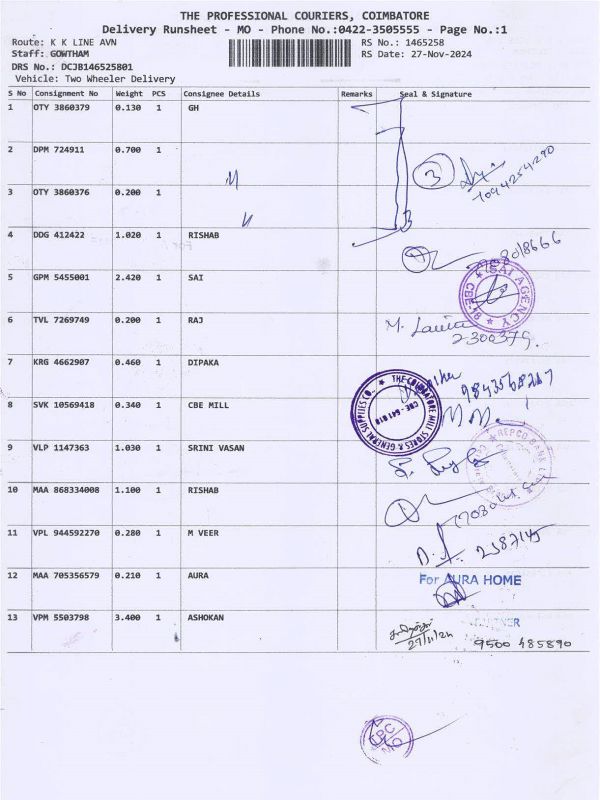 THE PROFESSIONAL COURIERS, COIMBATORE
Delivery Runsheet - MO - Phone No.:0422-3505555 - Page No.:1
Route: K K LINE AVN
RS No.: 1465258
Staff: GOWTHAM
RS Date: 27-Nov-2024
DRS No.: DCJB146525801
Vehicle: Two Wheeler Delivery
S No Consignment No Weight PCS Consignee Details Remarks Seal & Signature
1 OTY 3860379 0.130 1 GH
2 DPM 724911 0.700 1
3
3 OTY 3860376 0.200 1
4 DDG 412422 1.020 1 RISHAB
5 GPM 5455001 2.420 1 SAI
SAI AGENCY
6 TVL 7269749 0.200 1 RAJ
7 KRG 4662907 0.460 1 DIPAKA
8 SVK 10569418 0.340 1 CBE MILL
THE COIMBATORE MILL STORES & GENERAL SUPPLIES CO.,
9 VLP 1147363 1.030 1 SRINI VASAN
REPCO BANK
10 MAA 868334008 1.100 1 RISHAB
11 VPL 944592270 0.280 1 M VEER
12 MAA 705356579 0.210 1 AURA
For AURA HOME
13 VPM 5503798 3.400 1 ASHOKAN
27/11/24
9500 485890